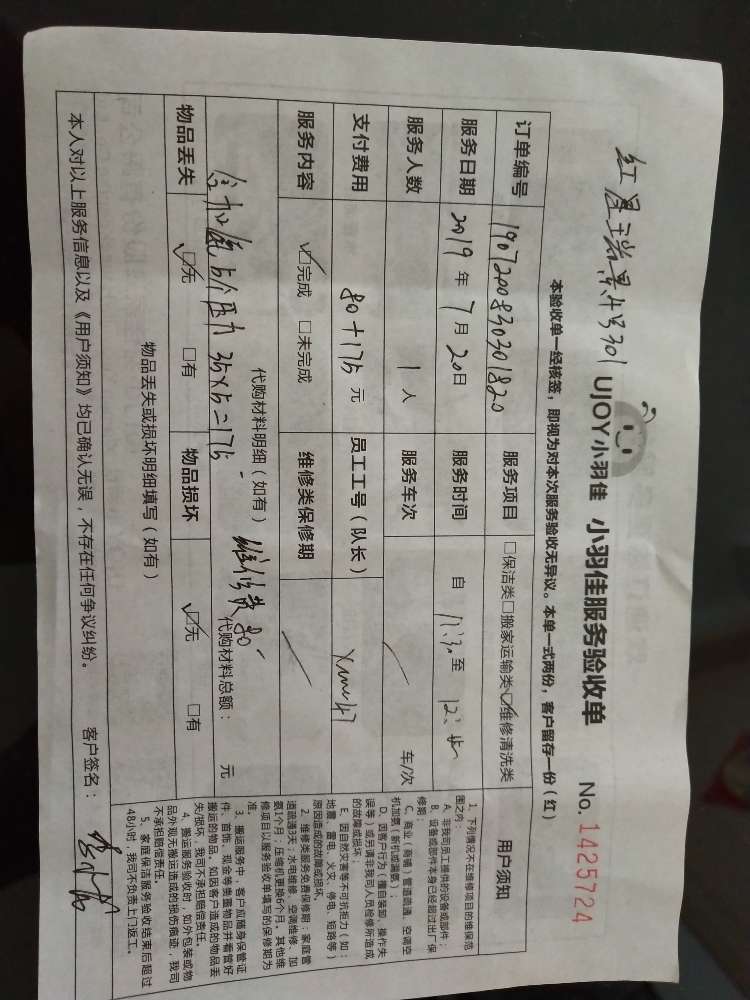 UJOY小羽佳 小羽佳服务验收单 No. 1425724
本验收单一经核签，即视为对本次服务验收无异议。本单一式两份，客户留存一份（红）
订单编号 1907200830301820 服务项目 □保洁类□搬家运输类☑维修清洗类
服务日期 2019 年 7 月 20 日 服务时间 自 11:30 至 12:
服务人数 1 人 服务车次 / 车/次
支付费用 80+175 元 员工工号（队长） xm147
服务内容 ☑完成 □未完成 维修类保修期 /
代购材料明细（如有） 维修费80
35×5=175 代购材料总额： 元
物品丢失 ☑无 □有 物品损坏 ☑无 □有
物品丢失或损坏明细填写（如有）
本人对以上服务信息以及《用户须知》均已确认无误，不存在任何争议纠纷。 客户签名：
用户须知
1、下列情况不在维修项目的维保范
围之内：
A、非我司员工提供的设备或部件；
B、设备或部件本身已经超过出厂保
修期；
C、商业（商铺）管道疏通、空调空
机加氨（新机或漏氨）；
D、因客户行为（擅自装卸、操作失
误等）或另请非我司人员检修所造成
的故障或损坏；
E、因自然灾害等不可抗拒力（如：
地震、雷电、火灾、停电、短路等）
原因造成的故障或损坏。
2、维修类服务免费保修期：家庭管
道疏通3天；水电维修、空调维修、加
氨1个月；压缩机更换6个月。其他维
修项目以服务验收单填写的保修期为
准。
3、搬运服务中，客户应随身保管证
件、首饰、现金等贵重物品并看管好
搬运的物品。如因客户造成的物品丢
失/损坏，我司不承担赔偿责任。
4、搬运服务验收时，如外包装或物
品外观无搬运造成的损伤痕迹，我司
不承担赔偿责任。
5、家庭保洁服务验收结束后超过
48小时，我司不负责上门返工。